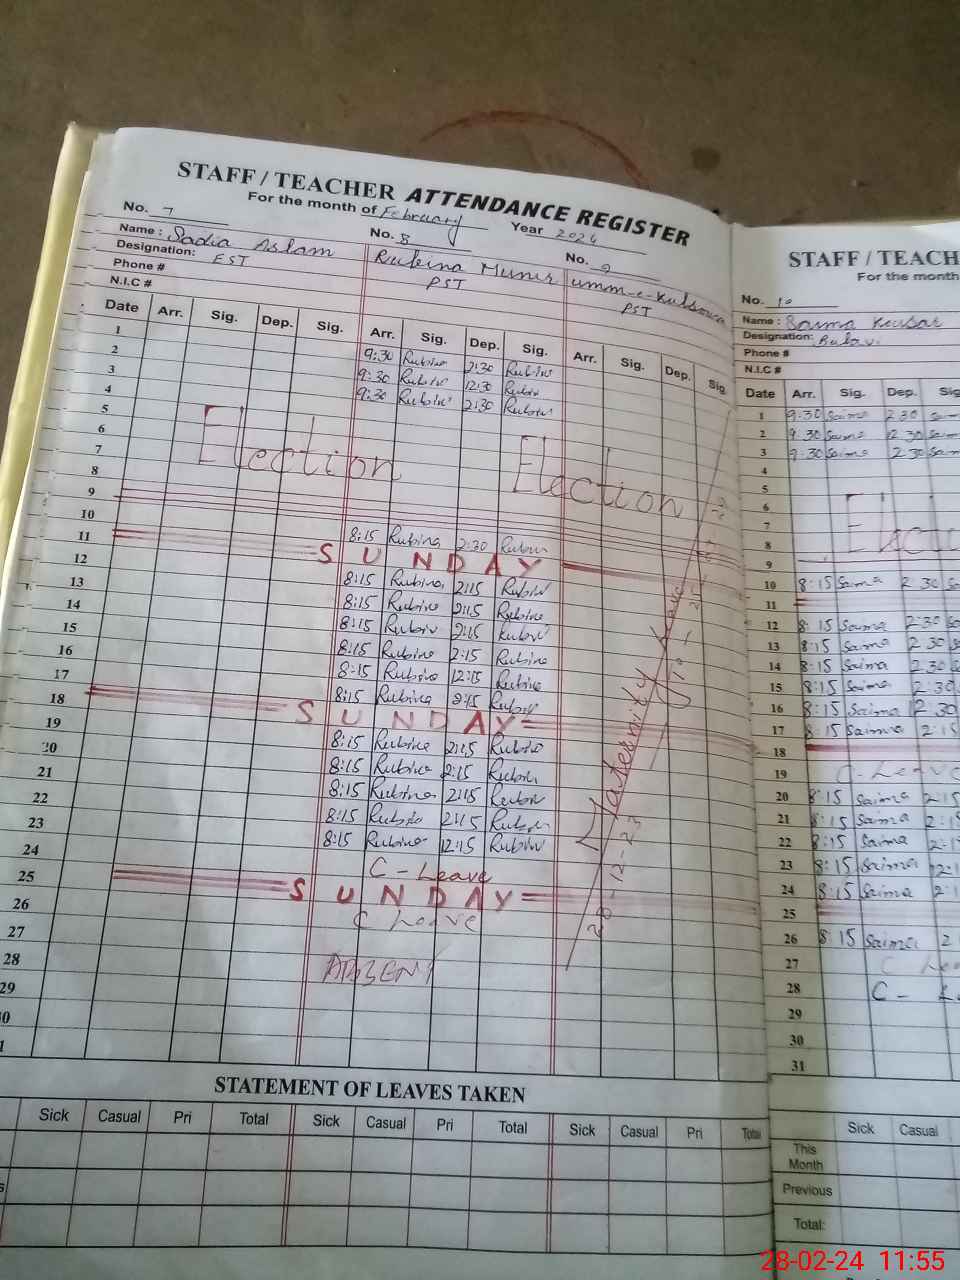 STAFF / TEACHER ATTENDANCE REGISTER
For the month of February Year 2024
No. 7 No. 8 No. 9
Name : Sadia Aslam Rubina Munir umm-e-Kulsoom
Designation: EST PST PST
Phone #
N.I.C #
Date Arr. Sig. Dep. Sig. Arr. Sig. Dep. Sig. Arr. Sig. Dep. Sig.
1 9:30 Rubina 2:30 Rubina
2 9:30 Rubina 12:30 Rubin
3 9:30 Rubina 2:30 Rubina
4
5
6 Election Election
7
8
9
10 8:15 Rubina 2:30 Rubina
11 SUNDAY
12 8:15 Rubina 2:15 Rubina
13 8:15 Rubina 2:15 Rubina
14 8:15 Rubina 2:15 Rubina
15 8:15 Rubina 2:15 Rubina
16 8:15 Rubina 12:15 Rubina
17 8:15 Rubina 2:15 Rubina
18 SUNDAY
19 8:15 Rubina 2:15 Rubina
20 8:15 Rubina 2:15 Rubina
21 8:15 Rubina 2:15 Rubina
22 8:15 Rubina 2:15 Rubina
23 8:15 Rubina 12:15 Rubina
24 C - Leave
25 SUNDAY
26 C Leave
27
28 ABSENT
29
30
31
Maternity Leave
28-12-23
STATEMENT OF LEAVES TAKEN
Sick Casual Pri Total Sick Casual Pri Total Sick Casual Pri Total
STAFF / TEACH
For the month
No. 10
Name : Saima Kousar
Designation:
Phone #
N.I.C #
Date Arr. Sig. Dep. Sig
1 9:30 Saima 2 30 Sam
2 9.30 Saima 12 30 Sam
3 9:30 Saima 2 30 Sam
4
5
6
7 Electio
8
9
10 8:15 Saima 2 30 Sa
11
12 8:15 Saima 2:30 Sa
13 8:15 Saima 2 30 Sa
14 8:15 Saima 2 30 Sa
15 8:15 Saima 2:30
16 8:15 Saima 12:30
17 8:15 Saima 2:15
18
19 C-Leave
20 8:15 Saima 2:15
21 8:15 Saima 2:1
22 8:15 Saima 2:1
23 8:15 Saima 12:1
24 8:15 Saima 2:1
25
26 8:15 Saima 2
27 C Lea
28 C - L
29
30
31
Sick Casual
This Month
Previous
Total:
28-02-24 11:55